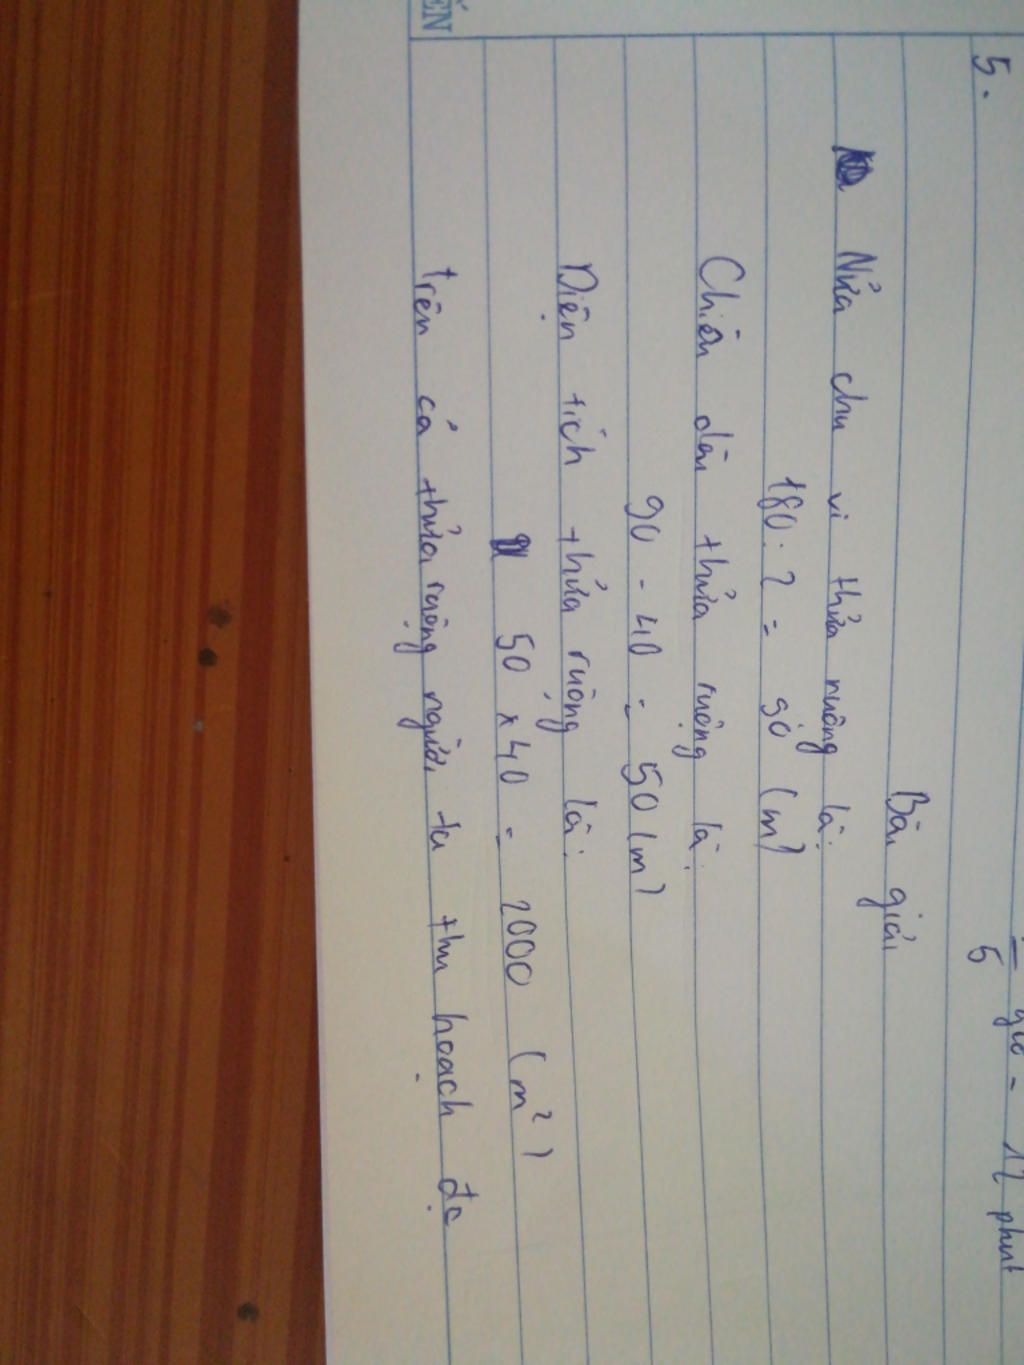 ẾN
1/5 giờ = 12 phút
5.
Bài giải
Nửa chu vi thửa ruộng là:
180 : 2 = 90 (m)
Chiều dài thửa ruộng là:
90 - 40 = 50 (m)
Diện tích thửa ruộng là:
50 x 40 = 2000 (m²)
trên cả thửa ruộng người ta thu hoạch đc